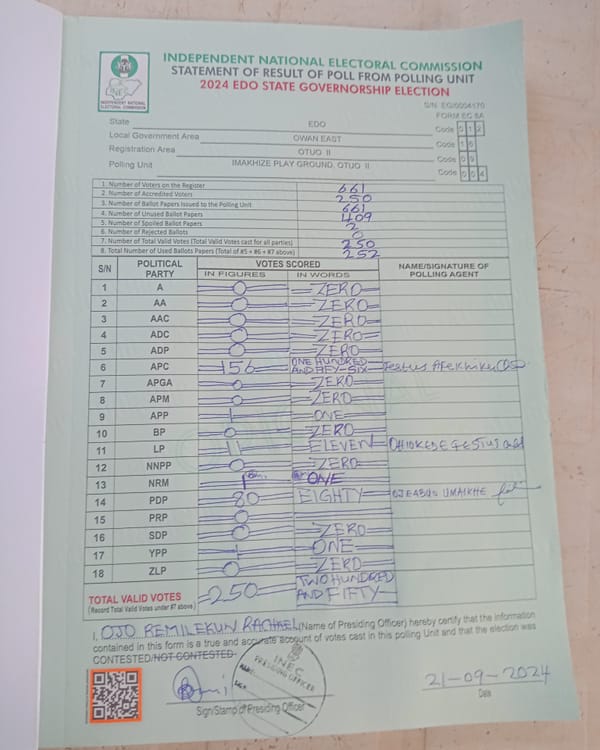 INDEPENDENT NATIONAL ELECTORAL COMMISSION
STATEMENT OF RESULT OF POLL FROM POLLING UNIT
2024 EDO STATE GOVERNORSHIP ELECTION
INEC
INDEPENDENT NATIONAL ELECTORAL COMMISSION
S/N EG/0004170
FORM EC 8A
State EDO Code 0 1 2
Local Government Area OWAN EAST Code 1 6
Registration Area OTUO II Code 0 9
Polling Unit IMAKHIZE PLAY GROUND, OTUO II Code 0 0 4
1. Number of Voters on the Register 661
2. Number of Accredited Voters 250
3. Number of Ballot Papers Issued to the Polling Unit 661
4. Number of Unused Ballot Papers 409
5. Number of Spoiled Ballot Papers 2
6. Number of Rejected Ballots 0
7. Number of Total Valid Votes (Total Valid Votes cast for all parties) 250
8. Total Number of Used Ballots Papers (Total of #5 + #6 + #7 above) 252
S/N POLITICAL PARTY VOTES SCORED NAME/SIGNATURE OF POLLING AGENT
IN FIGURES IN WORDS
1 A 0 ZERO
2 AA 0 ZERO
3 AAC 0 ZERO
4 ADC 0 ZERO
5 ADP 0 ZERO
6 APC 156 ONE HUNDRED AND FIFY-SIX Festus
7 APGA 0 ZERO
8 APM 0 ZERO
9 APP 1 ONE
10 BP 0 ZERO
11 LP 11 ELEVEN
12 NNPP 0 ZERO
13 NRM 1 ONE
14 PDP 80 EIGHTY OJEABUN UMAIKHE
15 PRP 0
16 SDP 0 ZERO
17 YPP 1 ONE
18 ZLP 0 ZERO
TOTAL VALID VOTES 250 TWO HUNDRED AND FIFTY
(Record Total Valid Votes under #7 above)
I, OJO REMILEKUN RACHAEL (Name of Presiding Officer) hereby certify that the information
contained in this form is a true and accurate account of votes cast in this polling Unit and that the election was
CONTESTED/NOT CONTESTED
INEC
PRESIDING OFFICER
21-09-2024
Sign/Stamp of Presiding Officer
Date